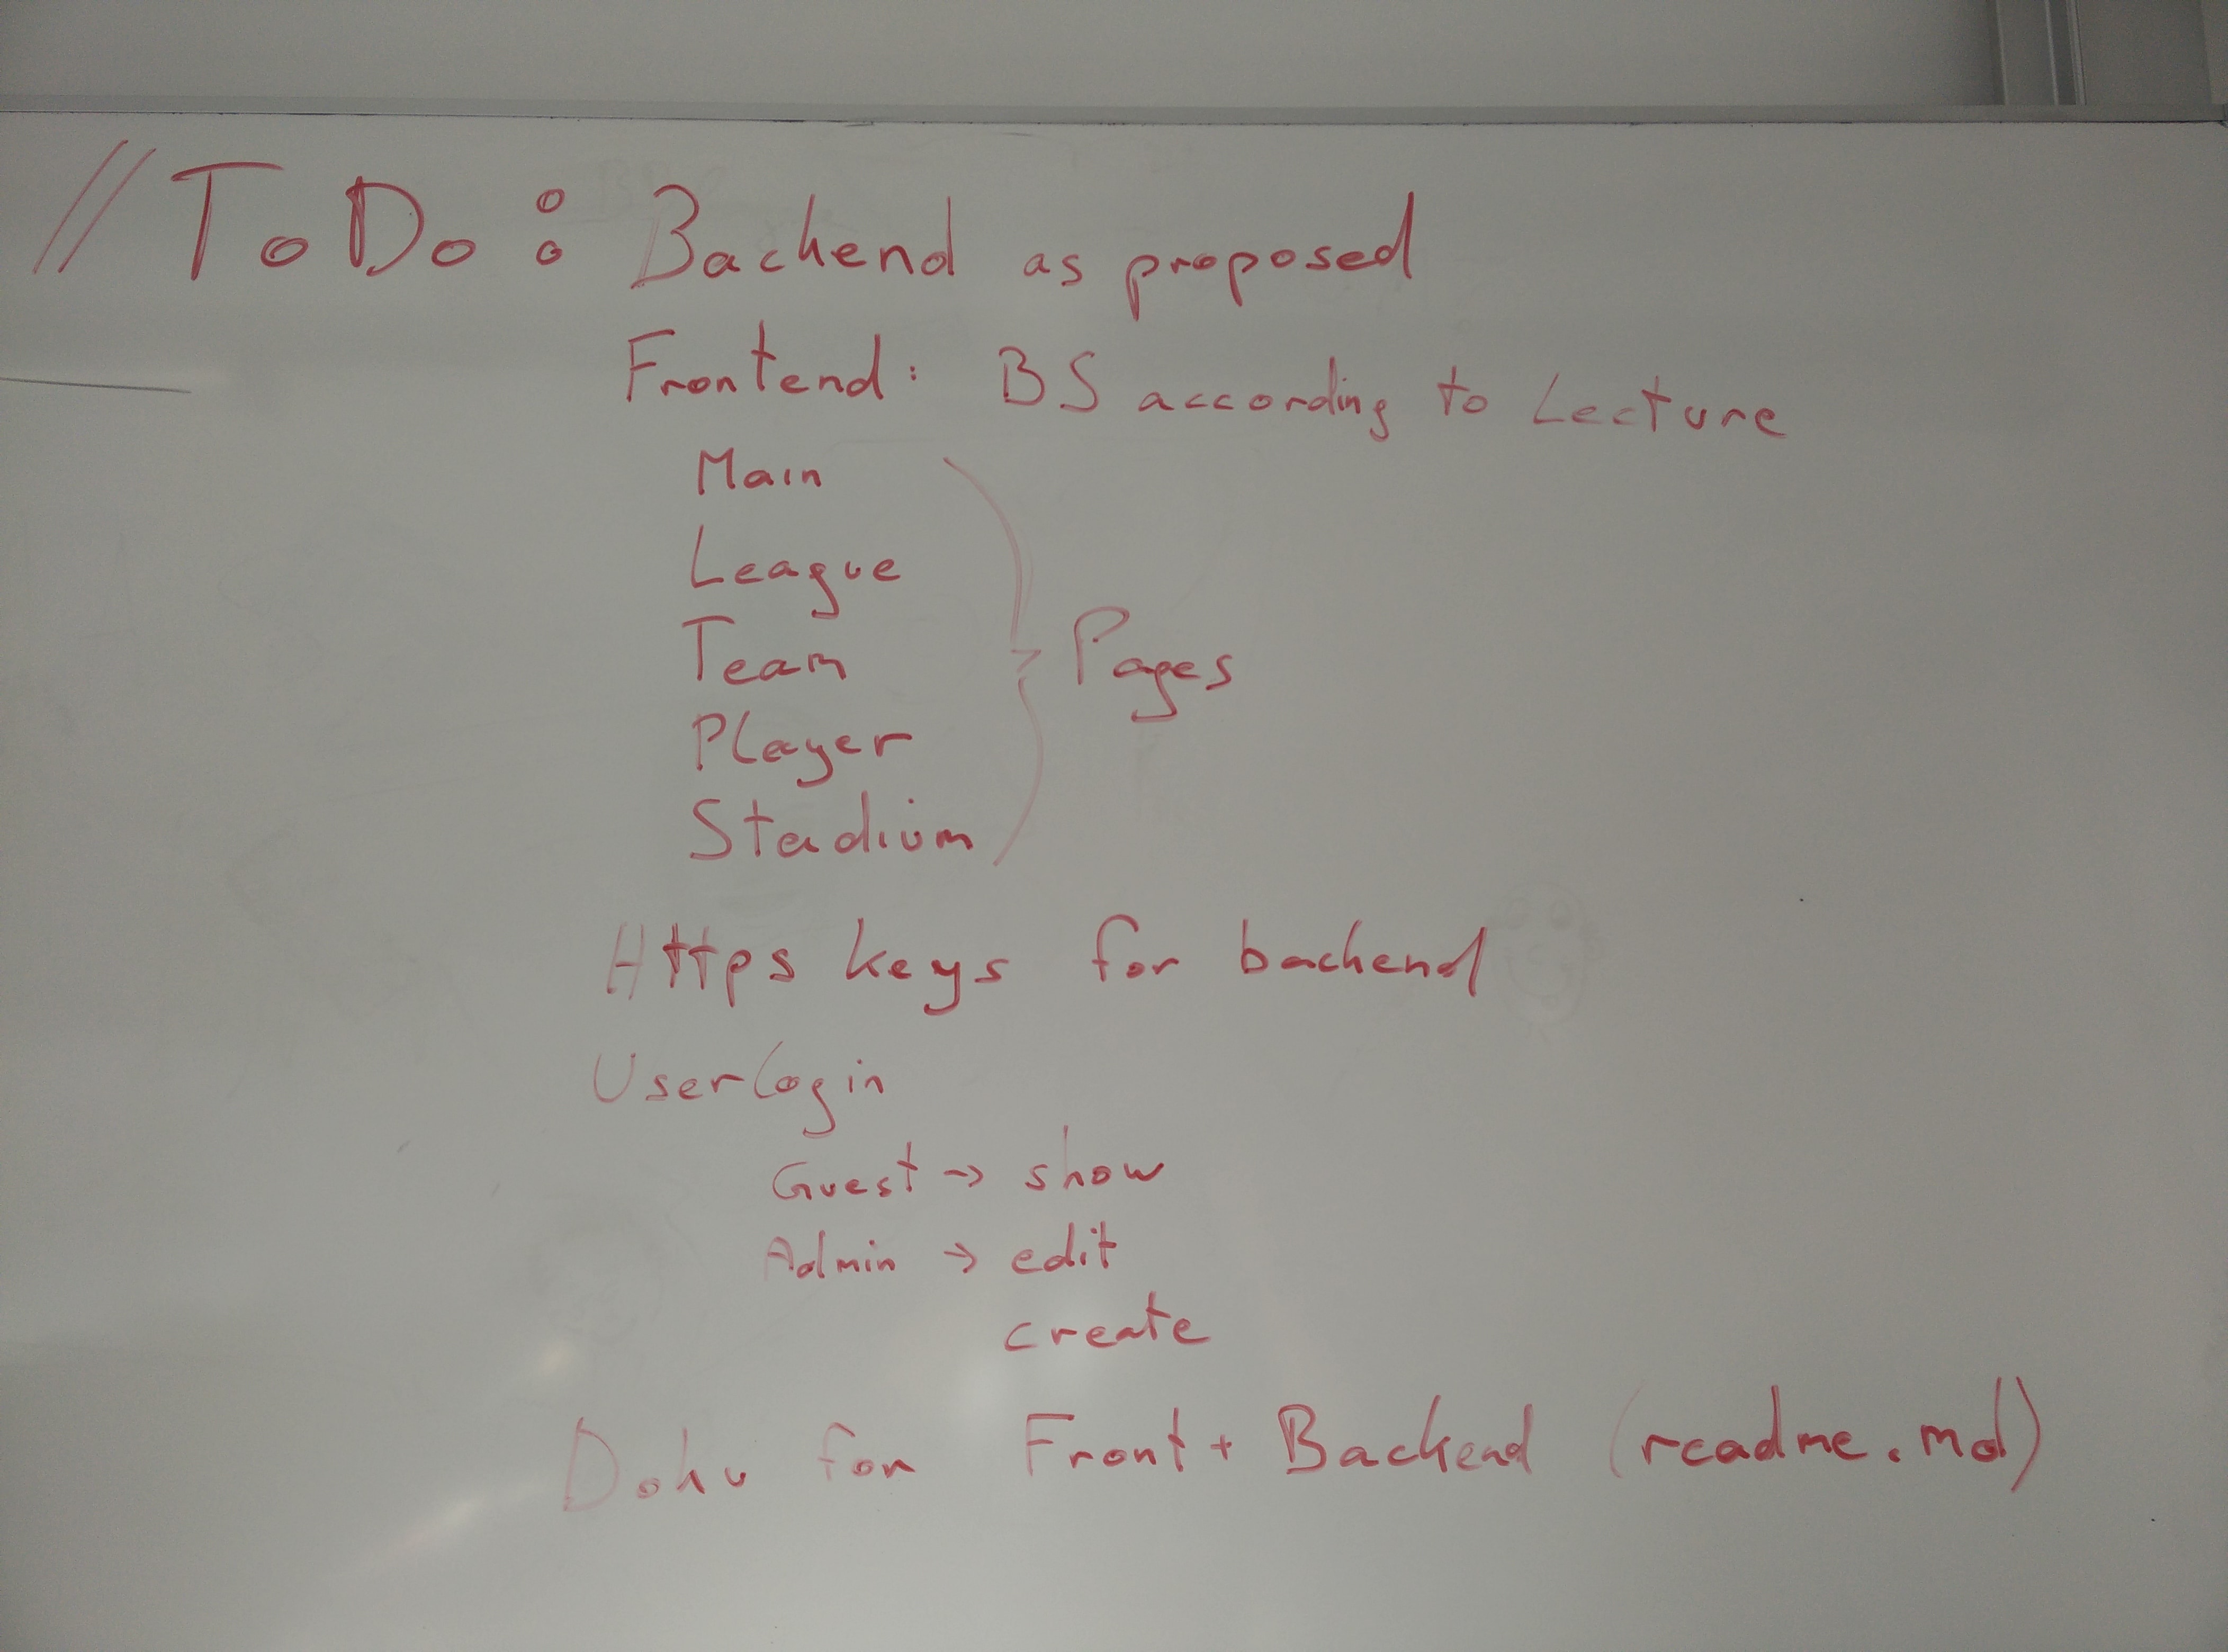 // ToDo: Backend as proposed
Frontend: BS according to Lecture
Main
League
Team
Player
Stadium
Pages
Https keys for backend
Userlogin
Guest → show
Admin → edit
create
Doku for Front + Backend (readme.md)